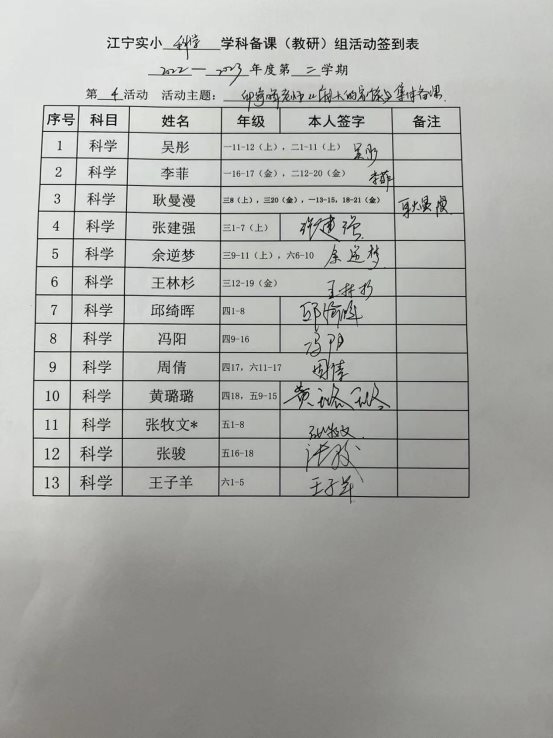 江宁实小 科学 学科备课（教研）组活动签到表
2022—2023 年度第 二 学期
第 4 活动 活动主题： 集体备课
序号 科目 姓名 年级 本人签字 备注
1 科学 吴彤 一11-12（上），二1-11（上） 吴彤
2 科学 李菲 一16-17（金），二12-20（金） 李菲
3 科学 耿曼漫 三8（上），三20（金），一13-15，18-21（金） 耿曼漫
4 科学 张建强 三1-7（上） 张建强
5 科学 余逆梦 三9-11（上），六6-10 余逆梦
6 科学 王林杉 三12-19（金） 王林杉
7 科学 邱绮晖 四1-8 邱绮晖
8 科学 冯阳 四9-16 冯阳
9 科学 周倩 四17，六11-17 周倩
10 科学 黄璐璐 四18，五9-15 黄璐璐
11 科学 张牧文* 五1-8 张牧文
12 科学 张骏 五16-18 张骏
13 科学 王子羊 六1-5 王子羊